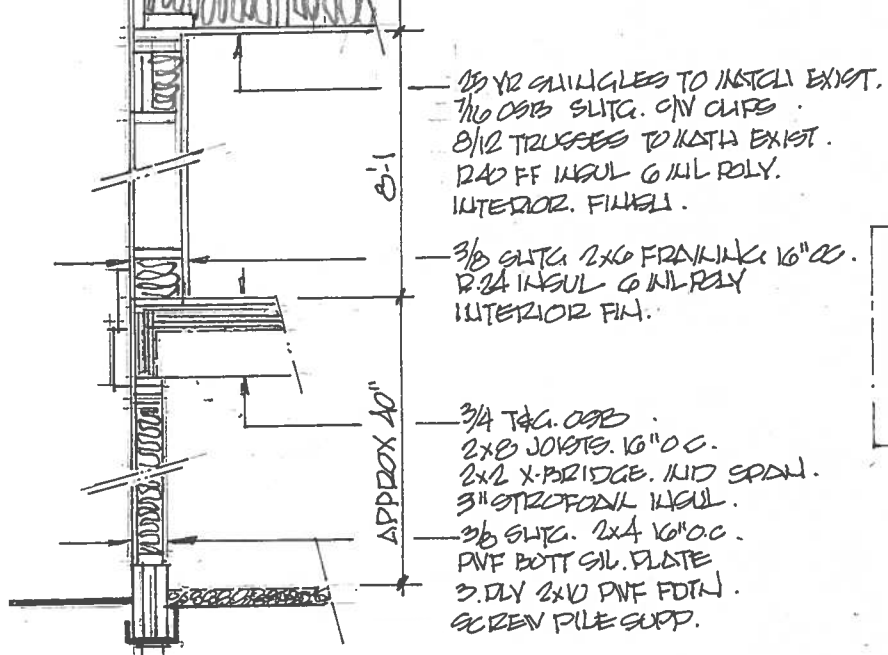 25 YR SHINGLES TO MATCH EXIST.
7/16 OSB SHTG. C/W CLIPS.
8/12 TRUSSES TO MATH EXIST.
R40 FF INSUL 6 MIL POLY.
INTERIOR. FINISH.
8'-1
3/8 SHTG 2x6 FRAMING 16" OC.
R.24 INSUL 6 MIL POLY
INTERIOR FIN.
APPROX 40"
3/4 T&G. OSB
2x8 JOISTS. 16" O C.
2x2 X-BRIDGE. MID SPAN.
3" STROFOAM INSUL.
3/8 SHTG. 2x4 16" O.C.
PWF BOTT SIL. PLATE
3. PLY 2x10 PWF FDTN.
SCREW PILE SUPP.